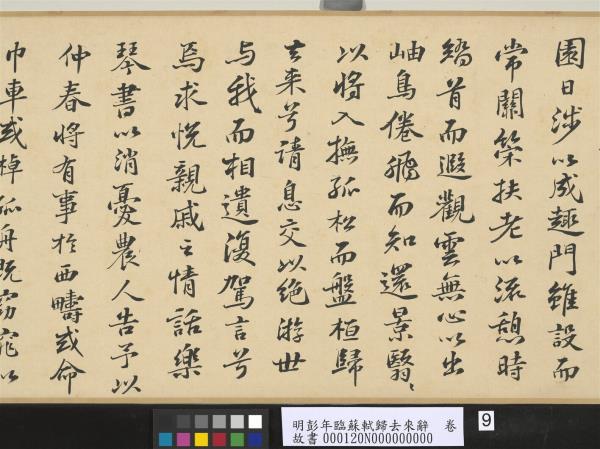 園日涉以成趣門雖設而
常關策扶老以流憩時
矯首而遐觀雲無心以出
岫鳥倦飛而知還景翳〻
以將入撫孤松而盤桓歸
去来兮請息交以絶游世
与我而相遺復駕言兮
焉求悅親戚之情話樂
琴書以消憂農人告予以
仲春將有事於西疇或命
巾車或棹孤舟既窈窕以
明彭年臨蘇軾歸去來辭 卷
故書 000120N000000000
9